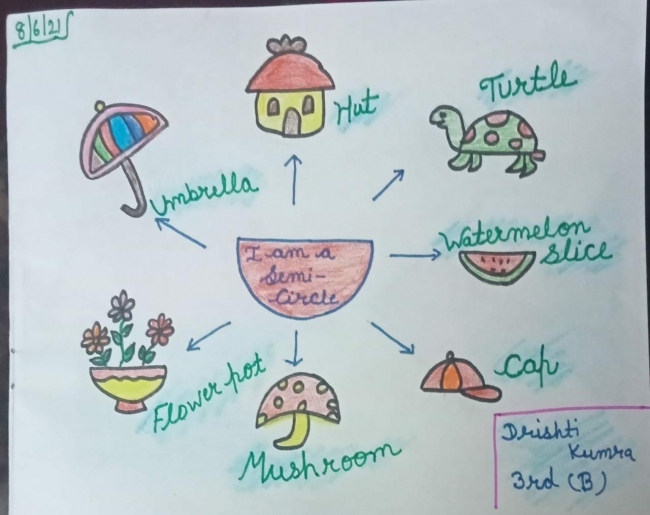 8/6/21
Hut
Turtle
Umbrella
I am a
Semi-
Circle
Watermelon
Slice
Flower pot
Cap
Mushroom
Drishti
Kumra
3rd (B)